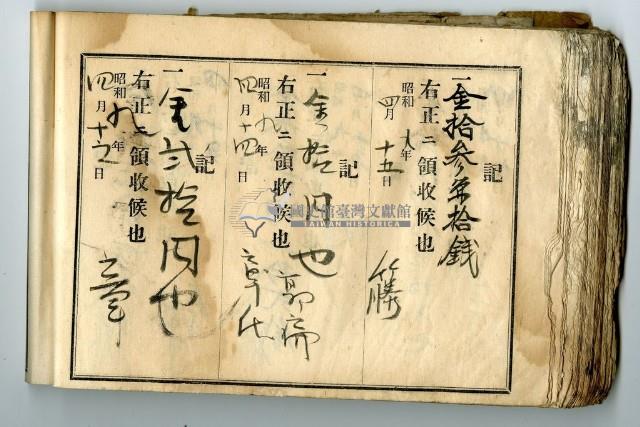 記
一金拾參円拾錢
右正ニ領收候也
昭和 九年
四月 十五日
記
一金拾円也
右正ニ領收候也
昭和 九年
四月十四日
記
一金弐拾円也
右正ニ領收候也
昭和 九年
四月十六日
國史館臺灣文獻館
TAIWAN HISTORICA